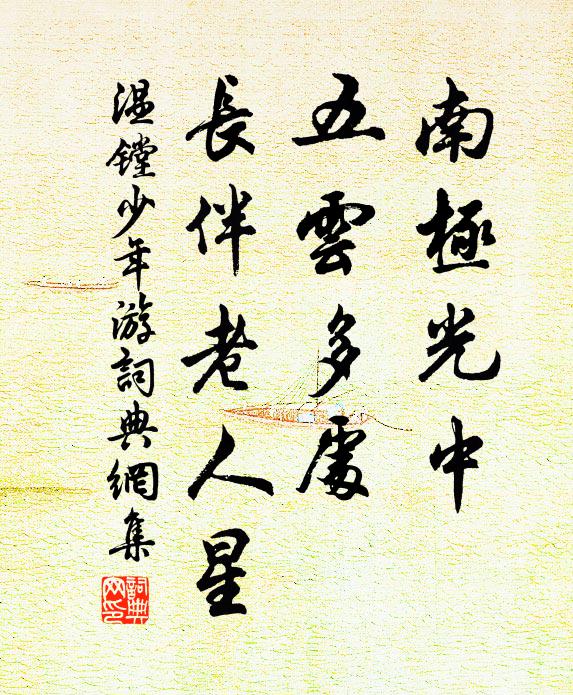 南極光中
五雲多處
長伴老人星
温鏜少年游詞典網集
詞典
网印